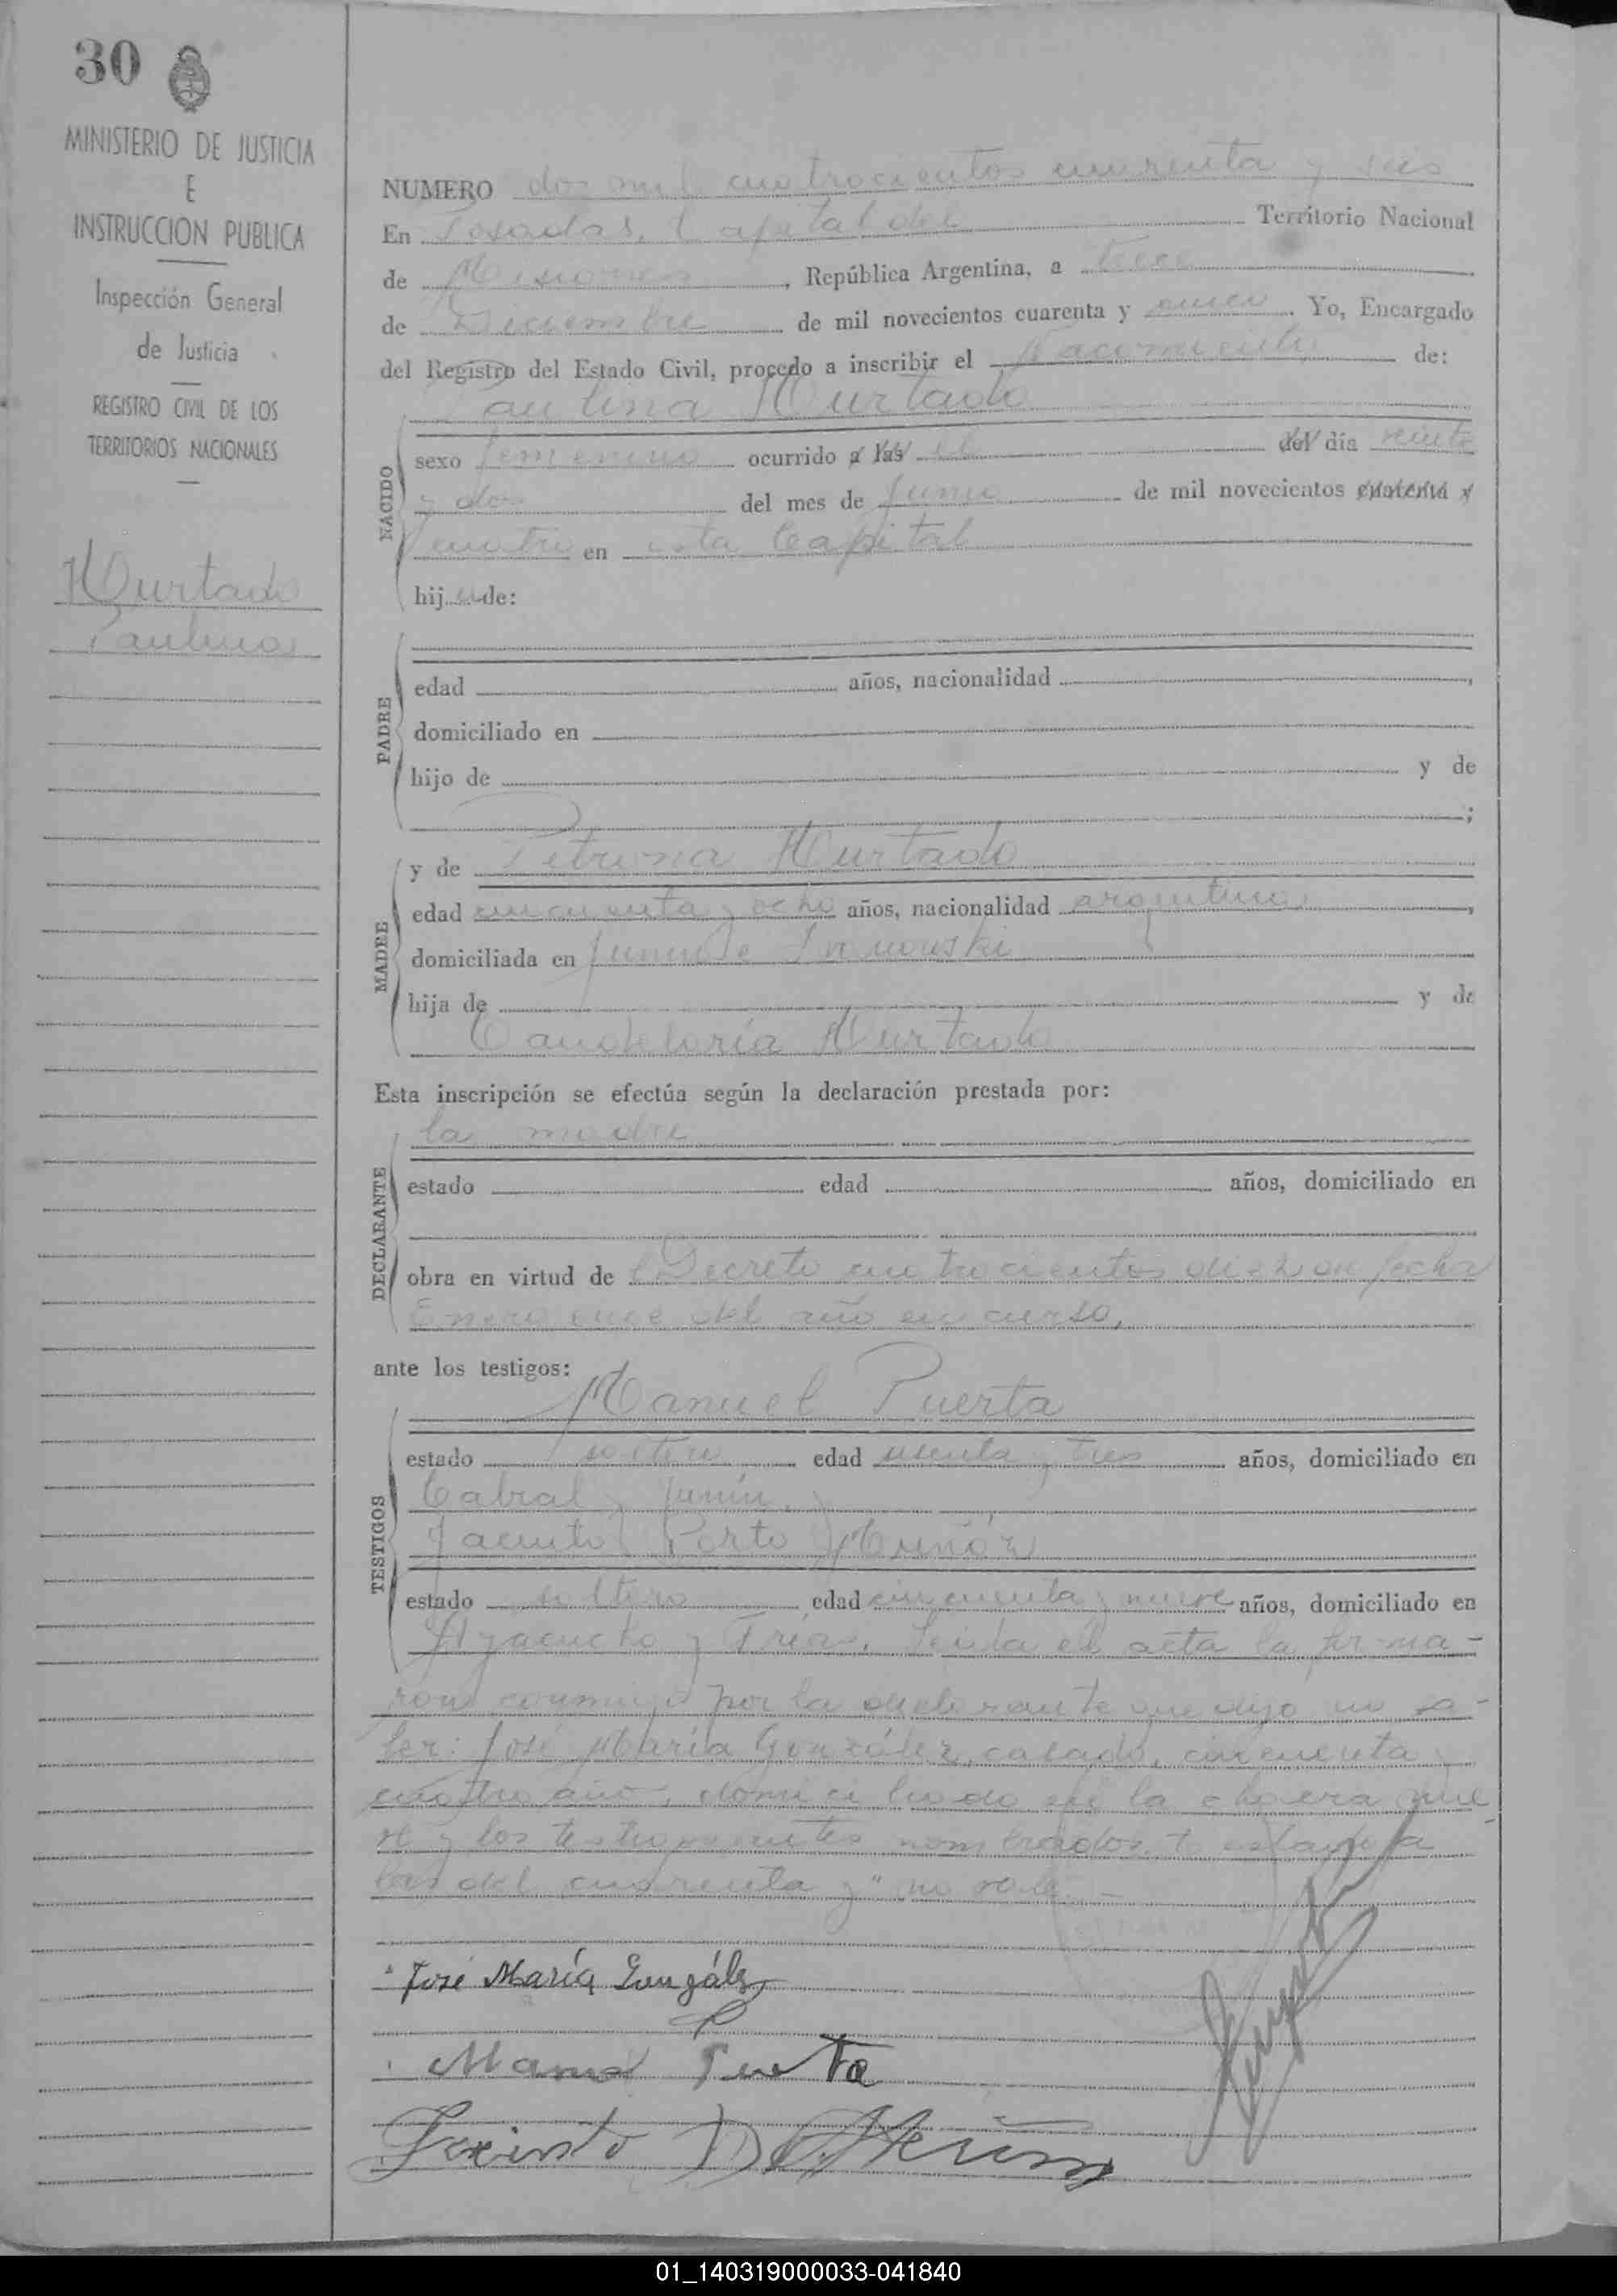 30
MINISTERIO DE JUSTICIA
E
INSTRUCCION PUBLICA
Inspección General
de Justicia
REGISTRO CIVIL DE LOS
TERRITORIOS NACIONALES
Hurtado
Paulina
NUMERO dos mil cuatrocientos cuarenta y seis
En Posadas, Capital del Territorio Nacional
de Misiones, República Argentina, a trece
de Diciembre de mil novecientos cuarenta y cinco. Yo, Encargado
del Registro del Estado Civil, procedo a inscribir el Nacimiento de:
Paulina Hurtado
NACIDO
sexo femenino ocurrido a las el del día veinte
y dos del mes de Junio de mil novecientos cuarenta y
cuatro en esta Capital
hij a de:
PADRE
edad años, nacionalidad ,
domiciliado en
hijo de y de
;
MADRE
y de Petrona Hurtado
edad cincuenta y ocho años, nacionalidad argentina,
domiciliada en Junin
hija de y de
Candelaria Hurtado
Esta inscripción se efectúa según la declaración prestada por:
la madre
DECLARANTE
estado edad años, domiciliado en
obra en virtud de Decreto cuatrocientos diez fecha
Enero once del año en curso,
ante los testigos:
Manuel Puerta
TESTIGOS
estado soltero edad sesenta y tres años, domiciliado en
Cabral y Junin, y
Jacinto Porto Muñóz
estado soltero edad cincuenta y nueve años, domiciliado en
Ayacucho y Frías. Leida el acta la firma-
ron conmigo por la declarante que dijo no sa-
ber: José María González, casado, cincuenta y
cuatro años, domiciliado en la chacra nue
ve y los testigos nombrados. testado a
las del cuarenta y" no vale.-
José María González
Manuel Puerta
Jacinto P. Muñoz
01_140319000033-041840